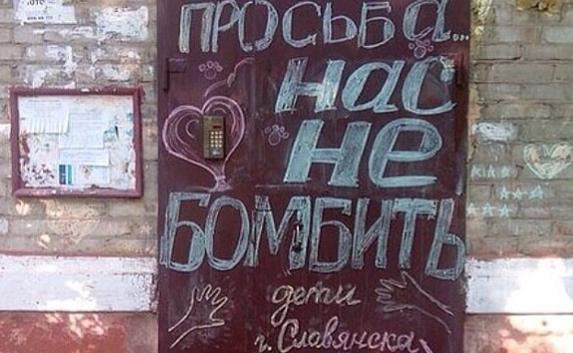 ПРОСЬБА...
нас
не
БОМБИТЬ
дети
г. Славянска